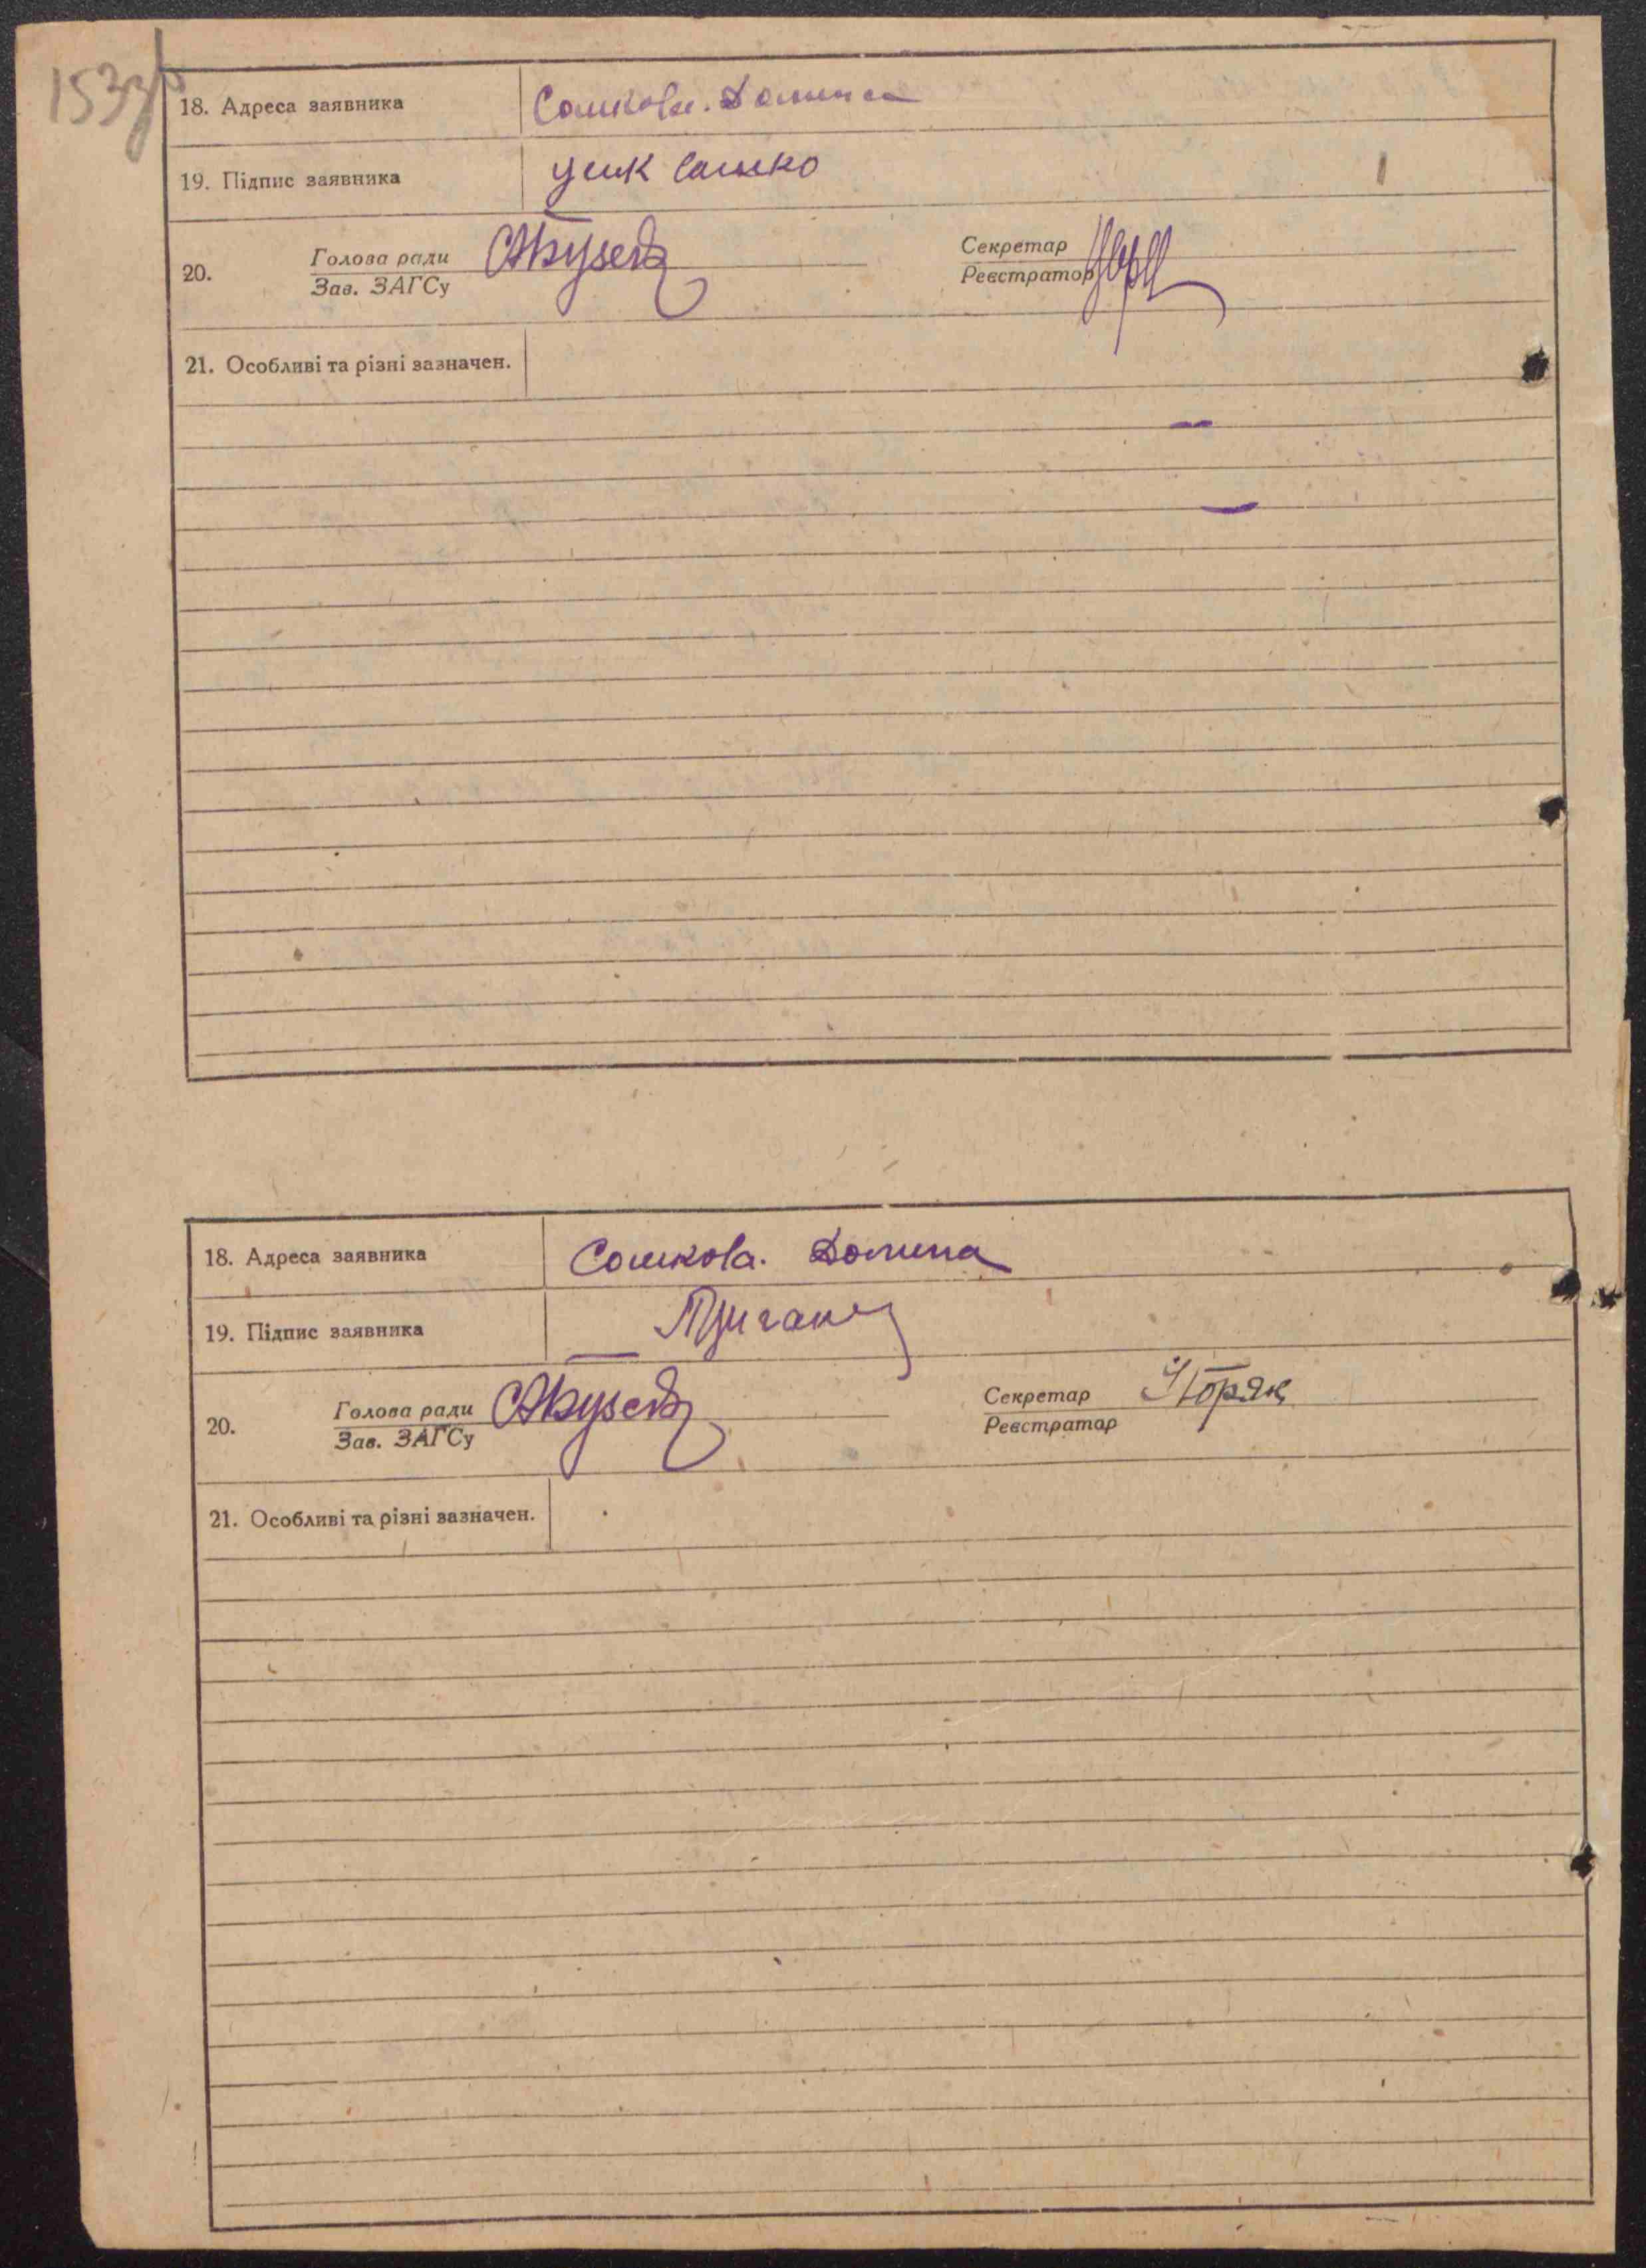 153зв
18. Адреса заявника Сошкова. Долина
19. Підпис заявника Сошко
20. Голова ради Секретар
Зав. ЗАГСу Реєстратор
21. Особливі та різні зазначен.
18. Адреса заявника Сошкова. Долина
19. Підпис заявника
20. Голова ради Секретар
Зав. ЗАГСу Реєстратор
21. Особливі та різні зазначен.